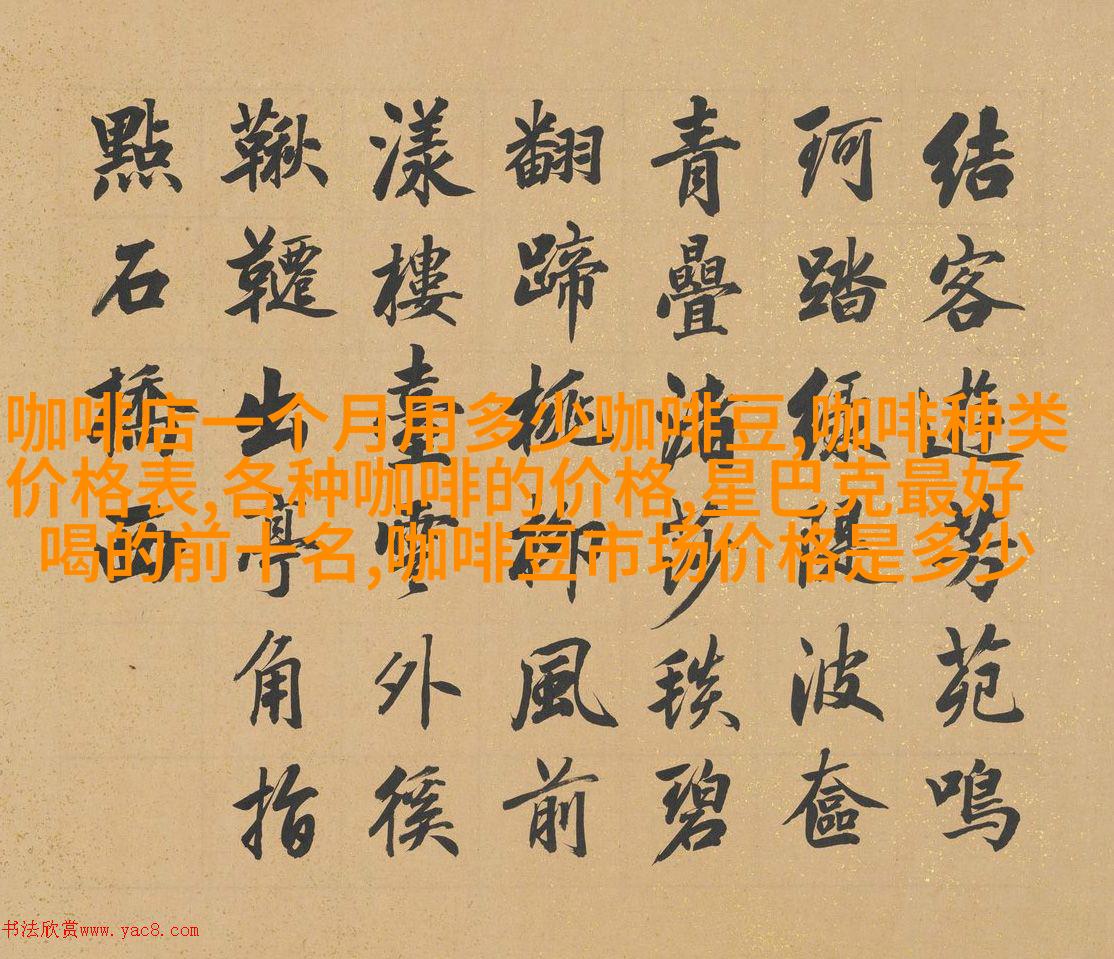 結客遊芳苑鳴
珂踏綠隄波奩
青疊沼莎毯碧
翻蹄風前
漾樓臺雲外徯
鞦韆出亭角指
點石橋西
咖啡店一个月用多少咖啡豆,咖啡种类
价格表,各种咖啡的价格,星巴克最好
喝的前十名,咖啡豆市场价格是多少
书法欣赏www.yac8.com